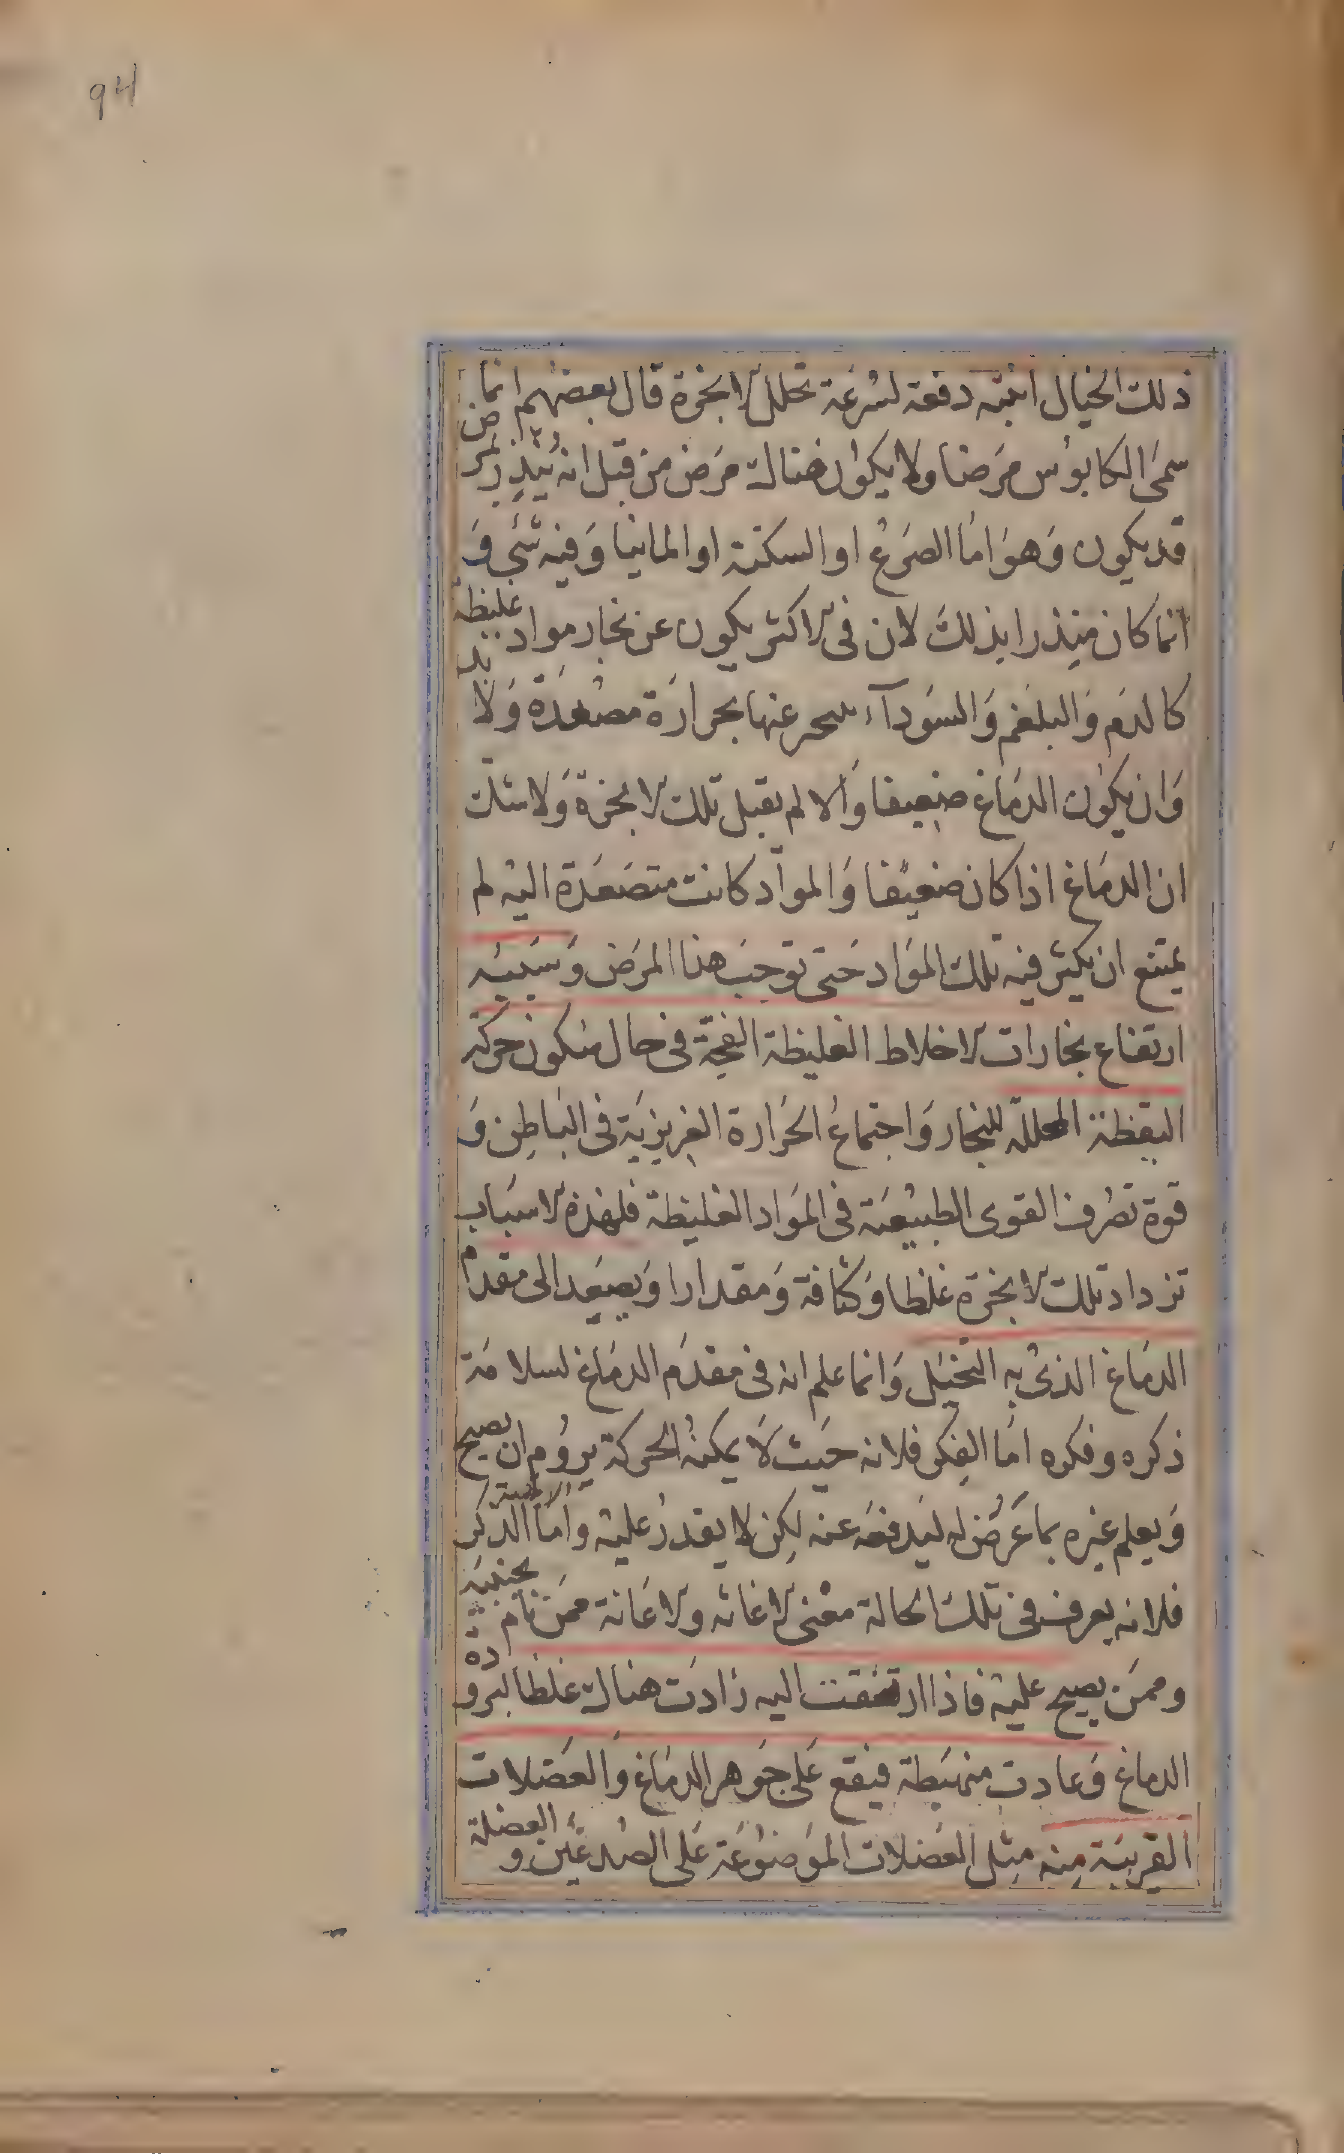 94
ذلك الخيال انتبه دفعة لسرعة تحلل الابخرة قال بعضهم انما
سمى الكابوس مرضا ولا يكون هناك مرض من قبل انه ينذر بمرض
قد يكون وهو اما الصرع او السكتة او المانيا وفيه شئ و
انما كان منذرا بذلك لان فى الاكثر يكون عن بخار مواد غليظة
كالدم والبلغم والسوداء عنها بحرارة مصعدة ولا بد
وان يكون الدماغ ضعيفا والا لم يقبل تلك الابخرة ولا شك
ان الدماغ اذا كان ضعيفا والمواد كانت متصعدة اليه لم
يمتنع ان يكثر فيه تلك المواد حتى توجب هذا المرض وسببه
ارتفاع بخارات الاخلاط الغليظة الفجة فى حال سكون حركة
اليقظة المحللة للبخار واجتماع الحرارة الغريزية فى الباطن و
قوة تصرف القوى الطبيعية فى المواد الغليظة فلهذه الاسباب
تزداد تلك الابخرة غلظا وكثافة ومقدارا ويصعد الى مقدم
الدماغ الذى به التخيل وانما علم انه فى مقدم الدماغ لسلامة
ذكره وفكره اما الفكر فلانه حيث لا يمكنه الحركة يروم ان يصيح
ويعلم غيره بما عرض له ليدفعه عنه لكن لا يقدر عليه واما الذكر
فلانه يعرف فى تلك الحالة معنى الاغاثه والاعانة ممن نام بجنبه
وممن يصيح عليه فاذا ارتفعت اليه زادت هناك غلظا لبرودة
الدماغ وعادت منهبطة فيقع على جوهر الدماغ والعضلات
القريبة منه مثل العضلات الموضوعة على الصدغين و العضلة